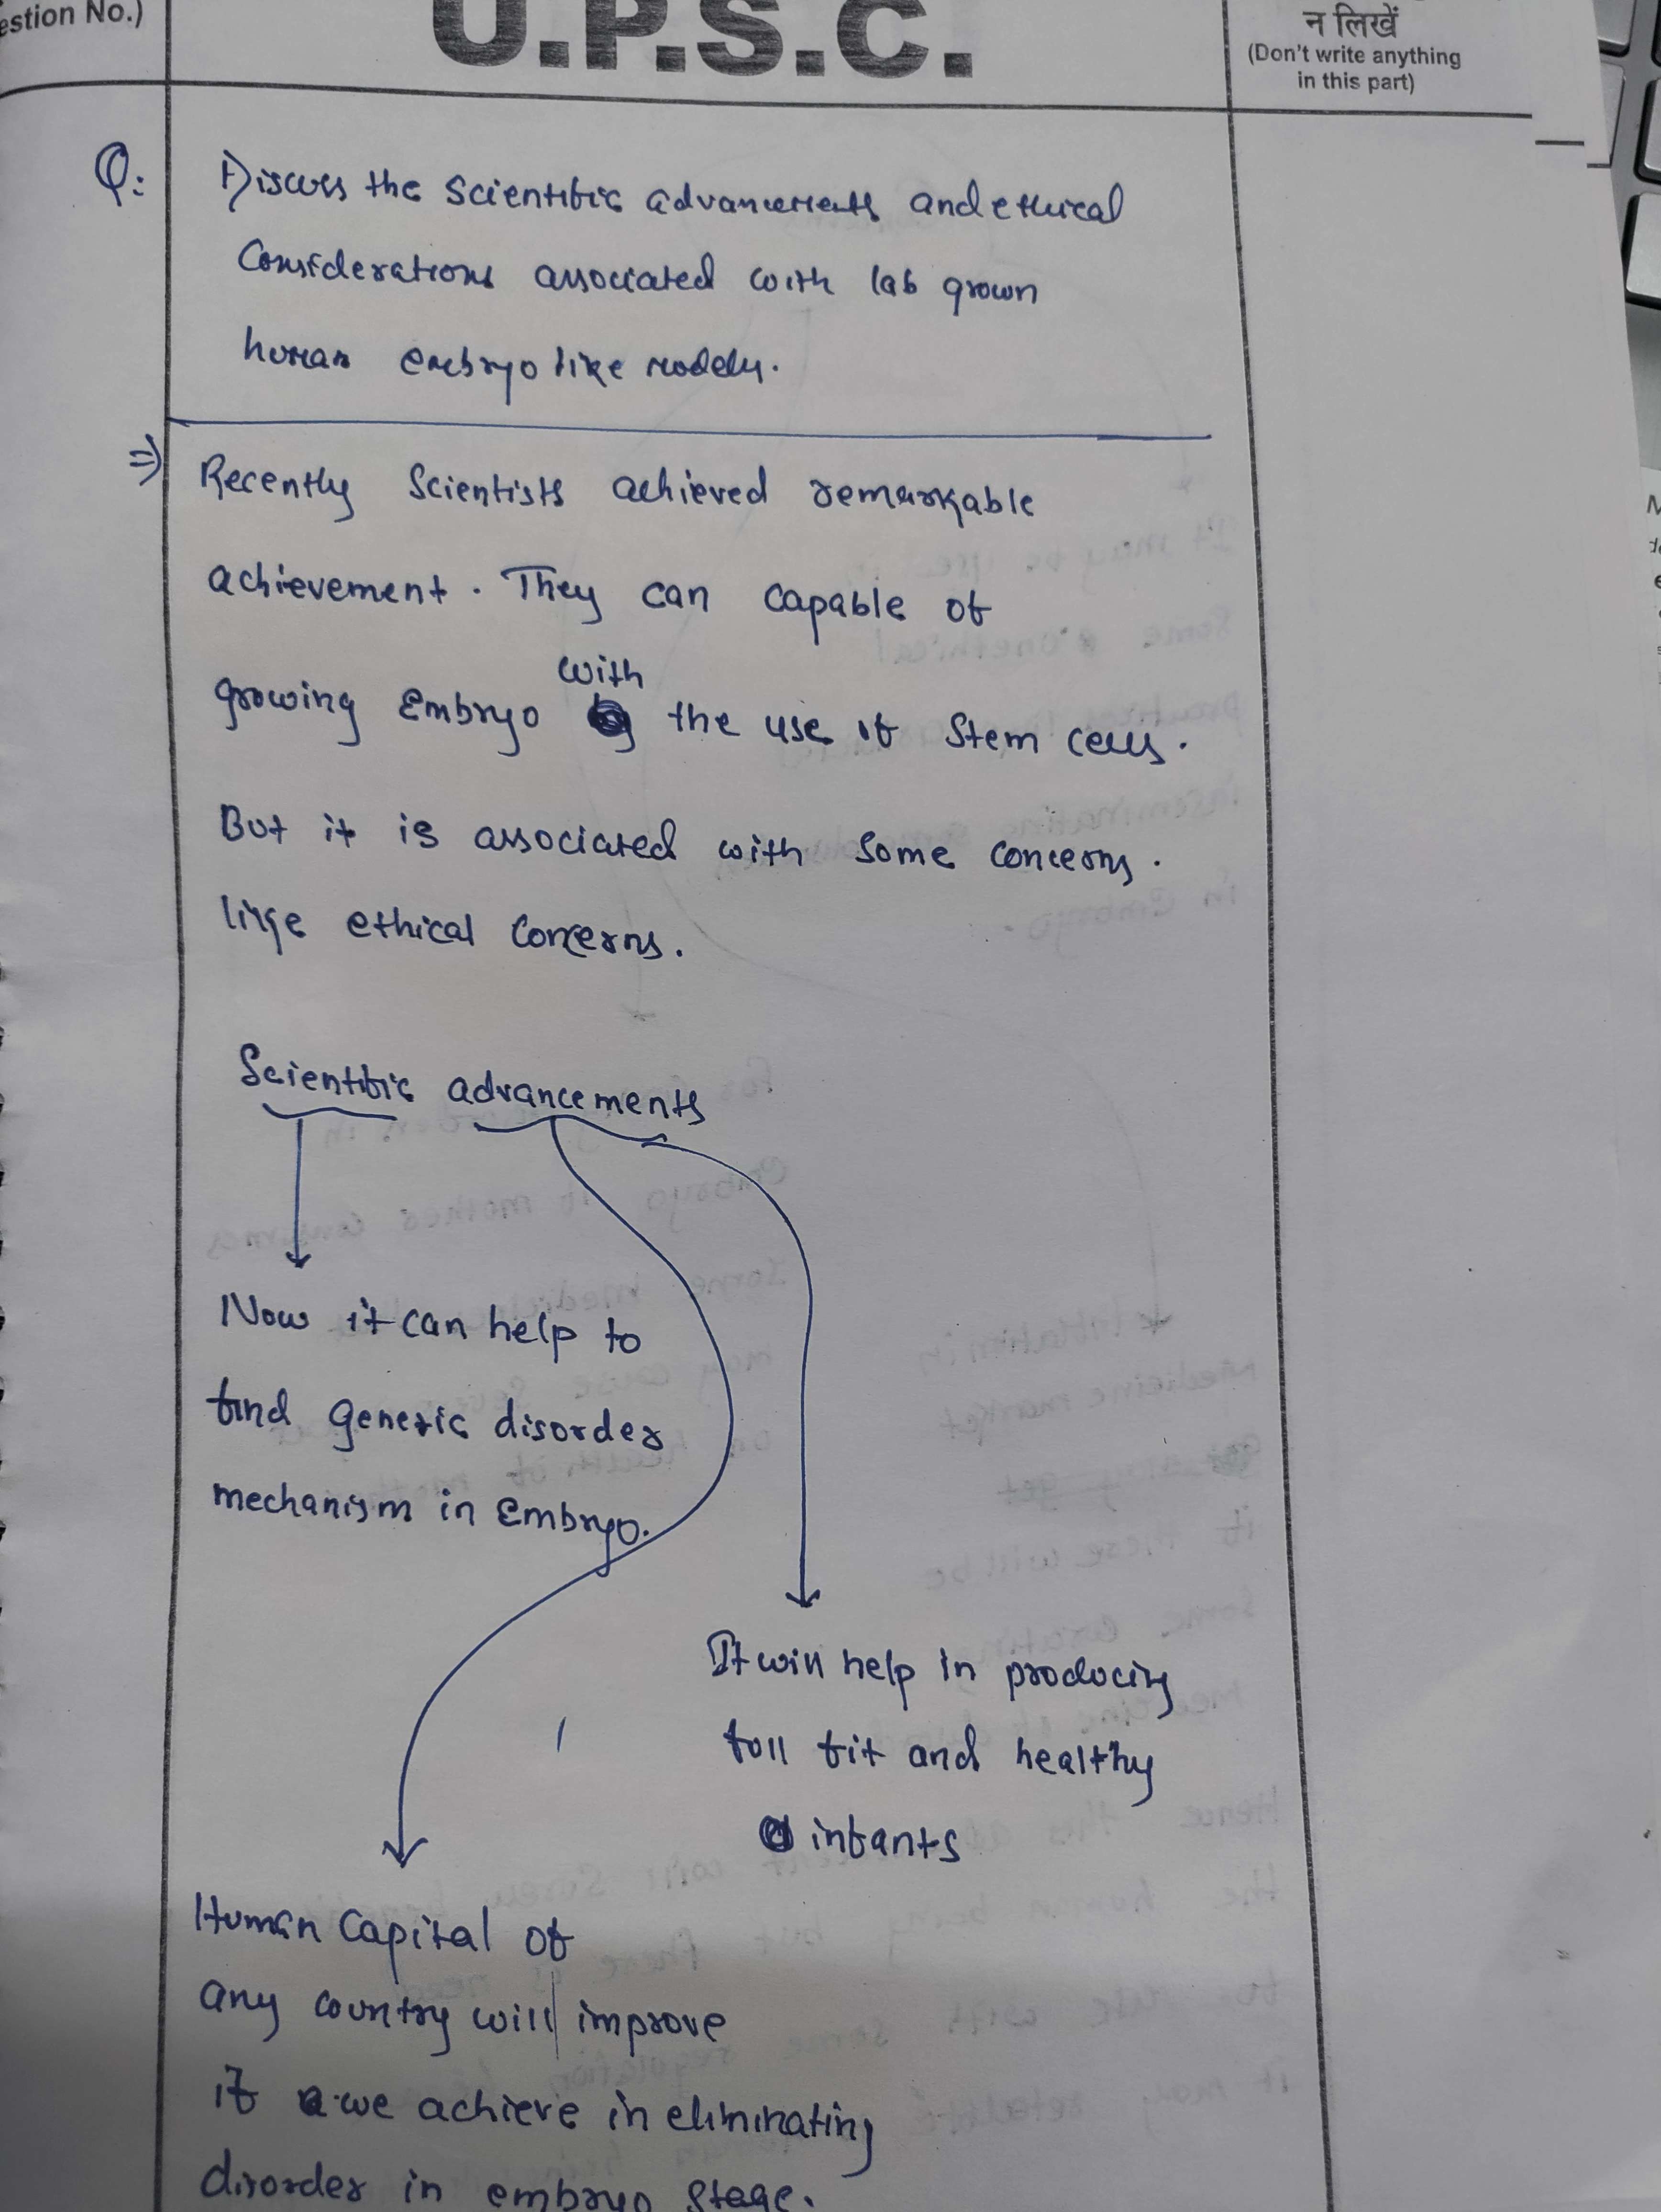 estion No.)
U.P.S.C.
न लिखें
(Don't write anything
in this part)
Q:
Discuss the scientific advancements and ethical
Considerations associated with lab grown
human embryo like models.
⇒ Recently Scientists achieved remarkable
achievement. They can capable of
growing Embryo with the use of Stem cells.
But it is associated with some concerns.
like ethical concerns.
Scientific advancements
Now it can help to
find genetic disorder
mechanism in Embryo.
It will help in producing
full fit and healthy
infants
Human Capital of
any country will improve
if we achieve in eliminating
disorder in embryo stage.